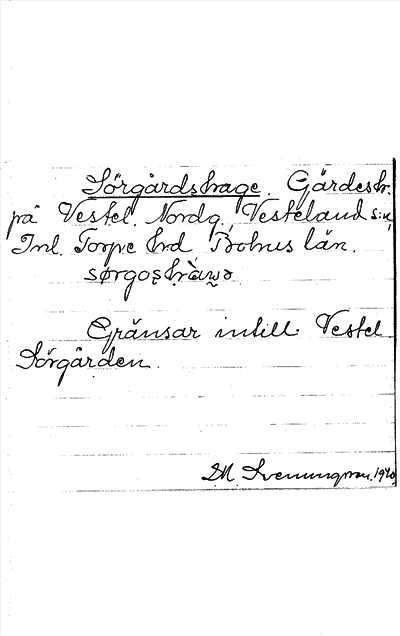 Sörgårdshage. Gärdeshr.
på Vestel. Nordg. Vesteland s:n,
Inl. Torpe hrd Bohus län.
Gränsar intill Vestel
Sörgården.
M. Svenungsson. 1920